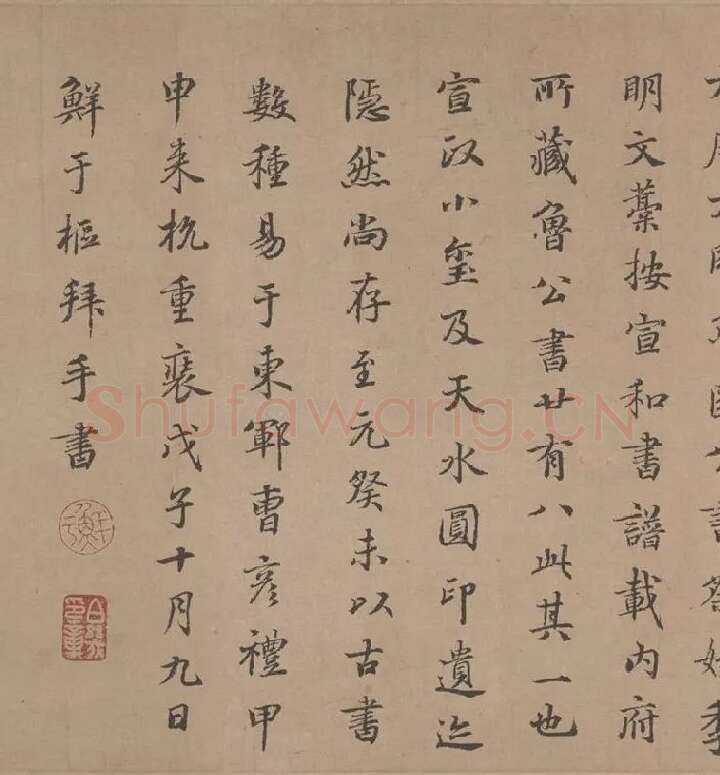 公書祭姪季
明文藁按宣和書譜載内府
所藏魯公書廿有八此其一也
宣政小璽及天水圓印遺迹
隱然尚存至元癸未以古書
數種易于東鄆曹彥禮甲
申来杭重裝戊子十月九日
鮮于樞拜手書
Shufawang.CN